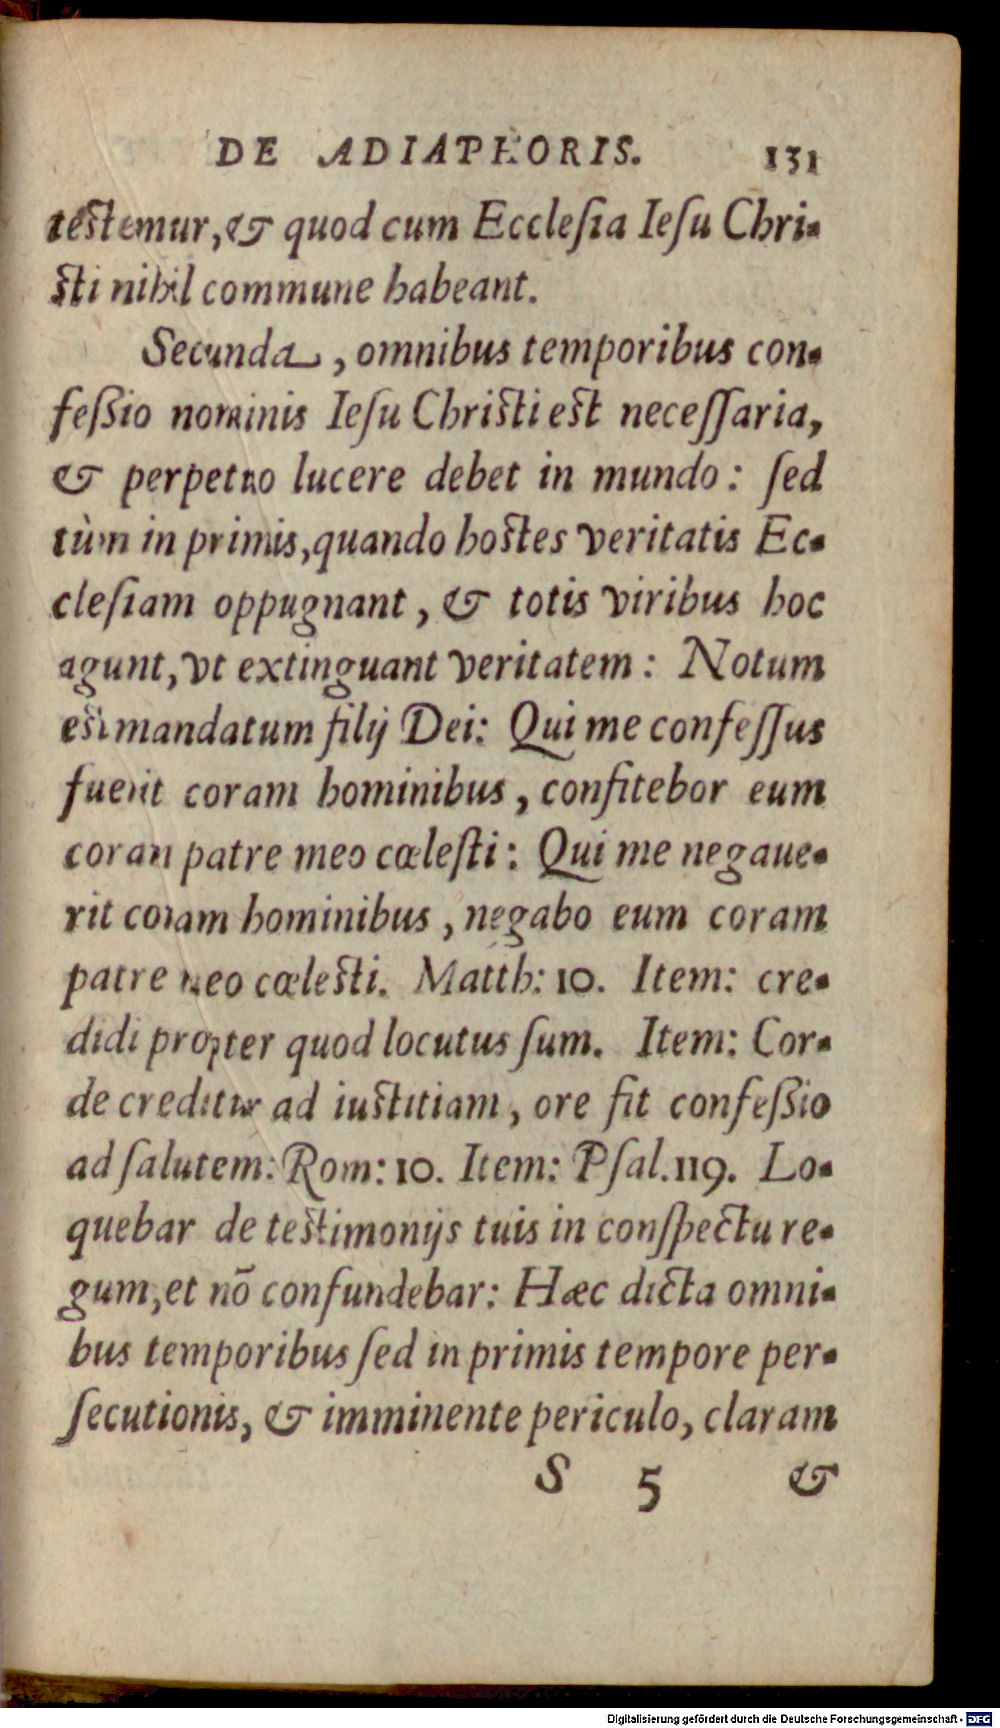 DE ADIAPHORIS. 131
testemur, & quod cum Ecclesia Iesu Chri-
sti nihil commune habeant.
Secunda, omnibus temporibus con-
feßio nominis Iesu Christi est necessaria,
& perpetuo lucere debet in mundo: sed
tùm in primis, quando hostes veritatis Ec-
clesiam oppugnant, & totis viribus hoc
agunt, vt extinguant veritatem: Notum
est mandatum filij Dei: Qui me confessus
fuerit coram hominibus, confitebor eum
coram patre meo cœlesti: Qui me negaue-
rit coram hominibus, negabo eum coram
patre meo cœlesti. Matth: 10. Item: cre-
didi propter quod locutus sum. Item: Cor-
de creditur ad iustitiam, ore fit confeßio
ad salutem: Rom: 10. Item: Psal. 119. Lo-
quebar de testimonijs tuis in conspectu re-
gum, et nō confundebar: Hæc dicta omni-
bus temporibus sed in primis tempore per-
secutionis, & imminente periculo, claram
S 5 &
Digitalisierung gefördert durch die Deutsche Forschungsgemeinschaft - DFG